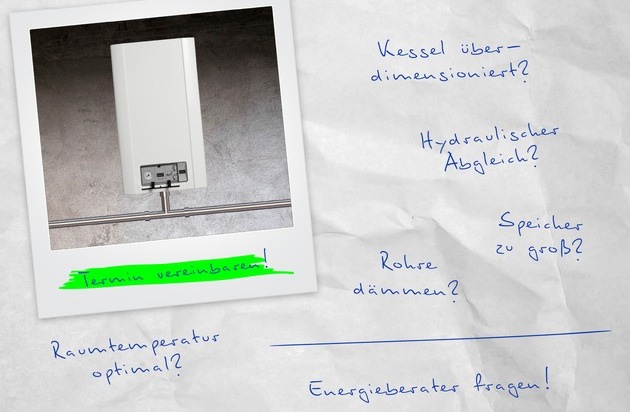 Kessel über-
dimensioniert?
Hydraulischer
Abgleich?
Speicher
zu groß?
Rohre
dämmen?
Termin vereinbaren!
Raumtemperatur
optimal?
Energieberater fragen!